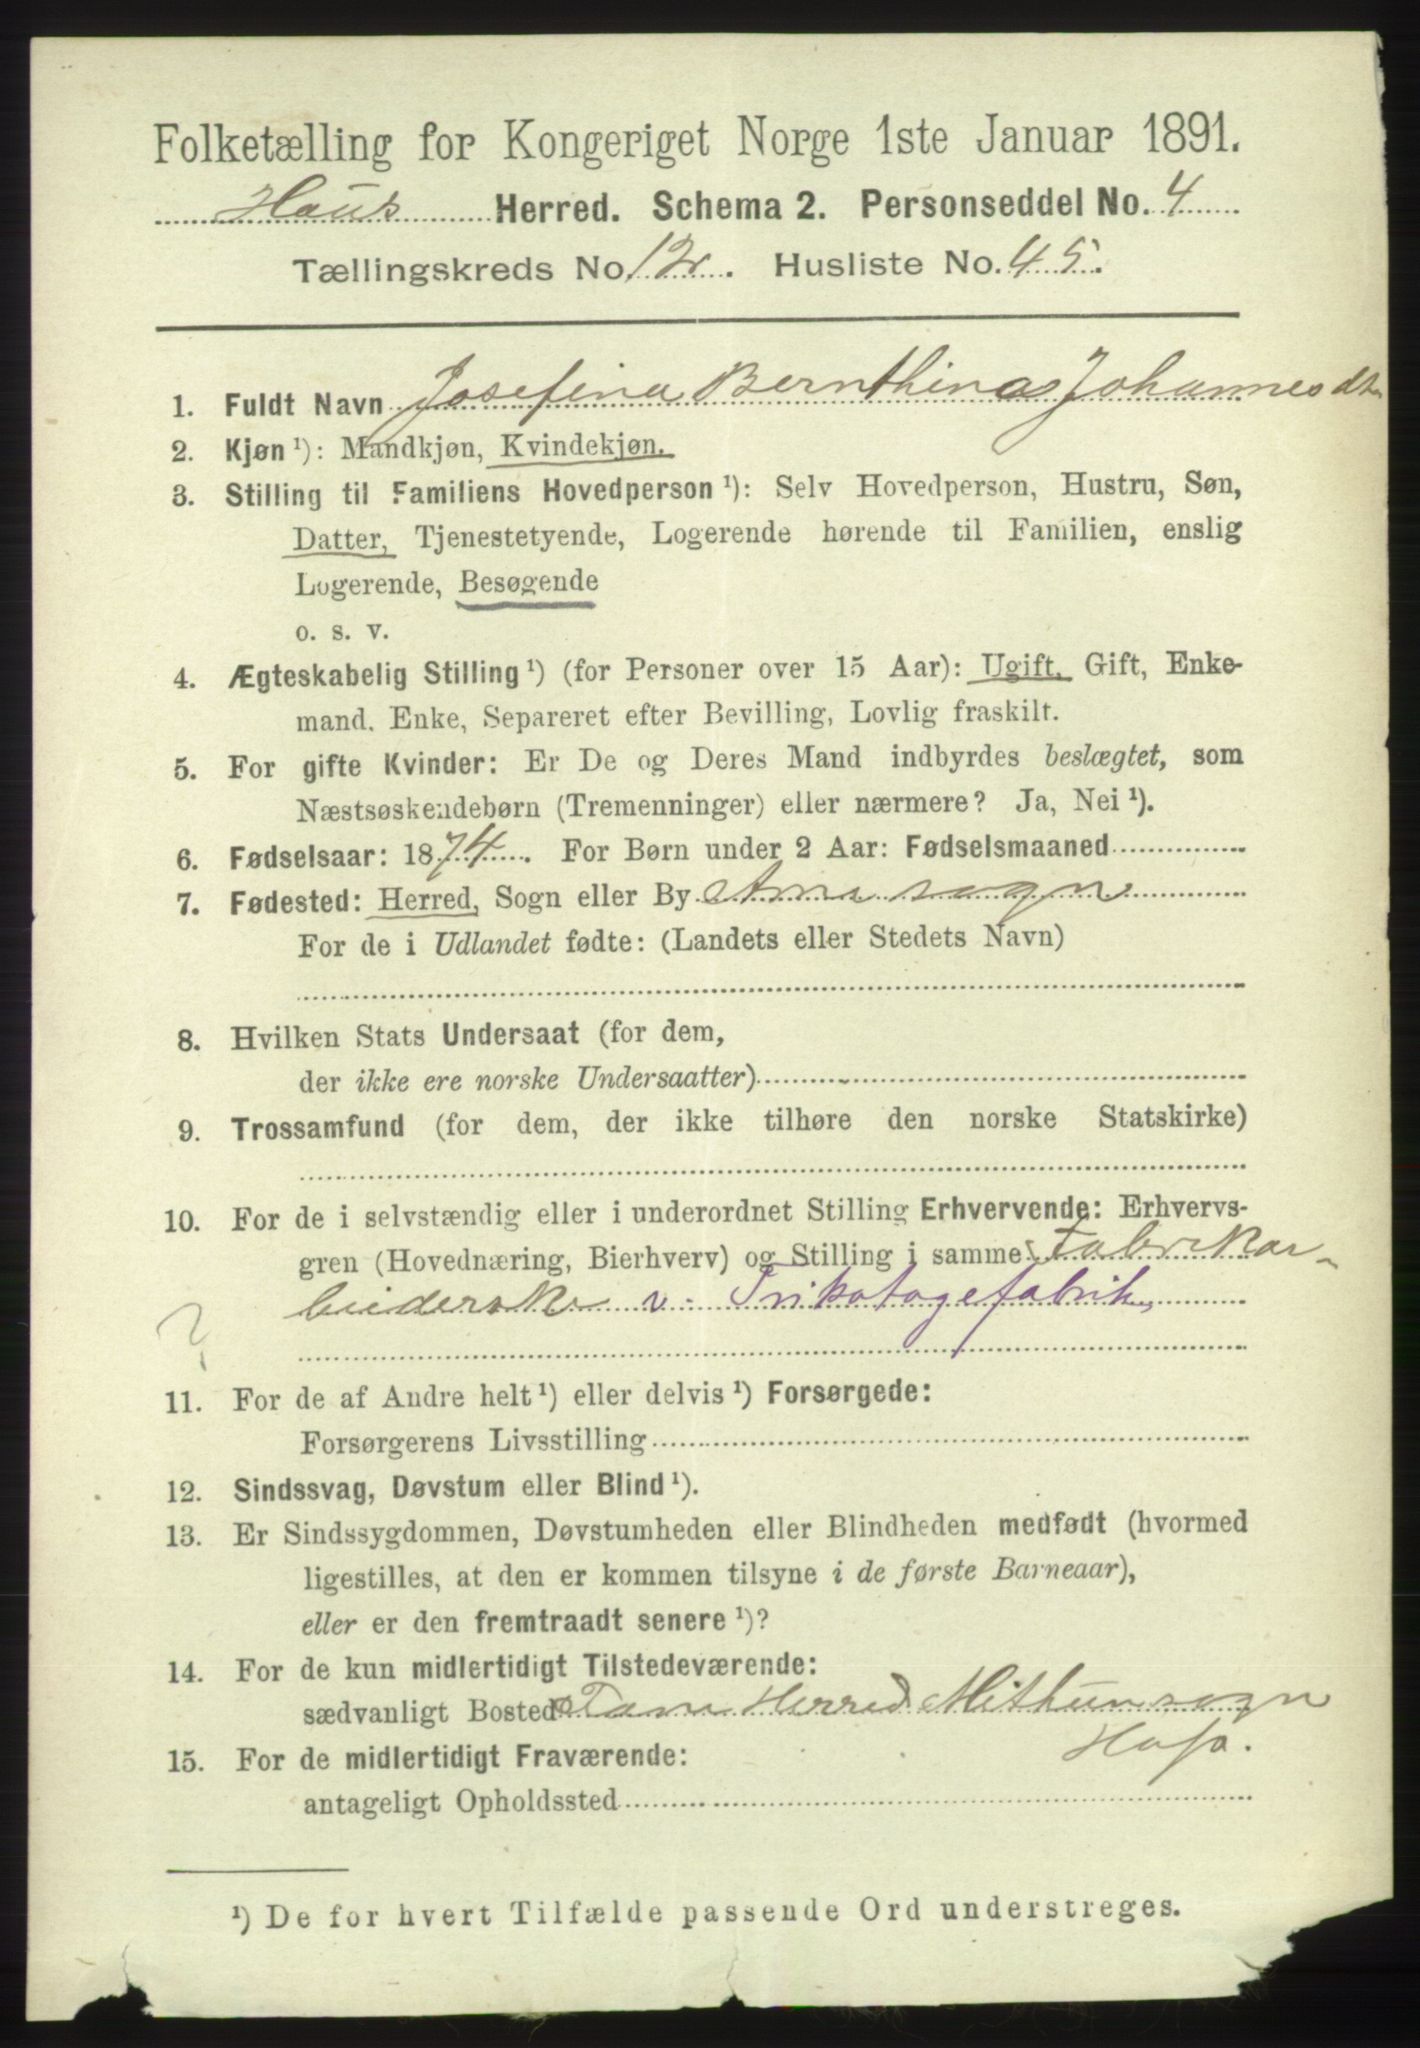 Folketælling for Kongeriget Norge 1ste Januar 1891.
Haus Herred. Schema 2. Personseddel No. 4
Tællingskreds No. 12. Husliste No. 45.
1. Fuldt Navn Josefina Bernthina Johannesdt
2. Kjøn ¹): Mandkjøn, Kvindekjøn.
3. Stilling til Familiens Hovedperson ¹): Selv Hovedperson, Hustru, Søn,
Datter, Tjenestetyende, Logerende hørende til Familien, enslig
Logerende, Besøgende
o. s. v.
4. Ægteskabelig Stilling ¹) (for Personer over 15 Aar): Ugift, Gift, Enke-
mand, Enke, Separeret efter Bevilling, Lovlig fraskilt.
5. For gifte Kvinder: Er De og Deres Mand indbyrdes beslægtet, som
Næstsøskendebørn (Tremenninger) eller nærmere? Ja, Nei ¹).
6. Fødselsaar: 1874. For Børn under 2 Aar: Fødselsmaaned
7. Fødested: Herred, Sogn eller By Arne sogn
For de i Udlandet fødte: (Landets eller Stedets Navn)
8. Hvilken Stats Undersaat (for dem,
der ikke ere norske Undersaatter)
9. Trossamfund (for dem, der ikke tilhøre den norske Statskirke)
10. For de i selvstændig eller i underordnet Stilling Erhvervende: Erhvervs-
gren (Hovednæring, Bierhverv) og Stilling i samme Fabrikar-
beiderske v. Trikotagefabrik
?
11. For de af Andre helt ¹) eller delvis ¹) Forsørgede:
Forsørgerens Livsstilling
12. Sindssvag, Døvstum eller Blind ¹).
13. Er Sindssygdommen, Døvstumheden eller Blindheden medfødt (hvormed
ligestilles, at den er kommen tilsyne i de første Barneaar),
eller er den fremtraadt senere ¹)?
14. For de kun midlertidigt Tilstedeværende:
sædvanligt Bosted Herred sogn
15. For de midlertidigt Fraværende:
antageligt Opholdssted
¹) De for hvert Tilfælde passende Ord understreges.